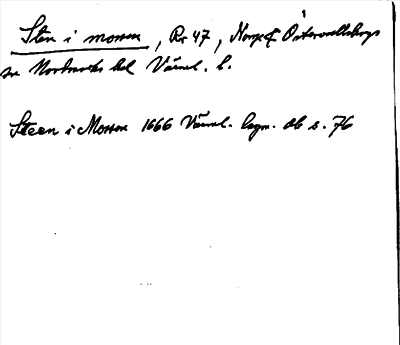 Sten i mossen, Rr 47, Norge f Östervallskogs
sn Nordmarks hd Värml. l.
Steen i Mossen 1666 Värml. ligm. db s. 76